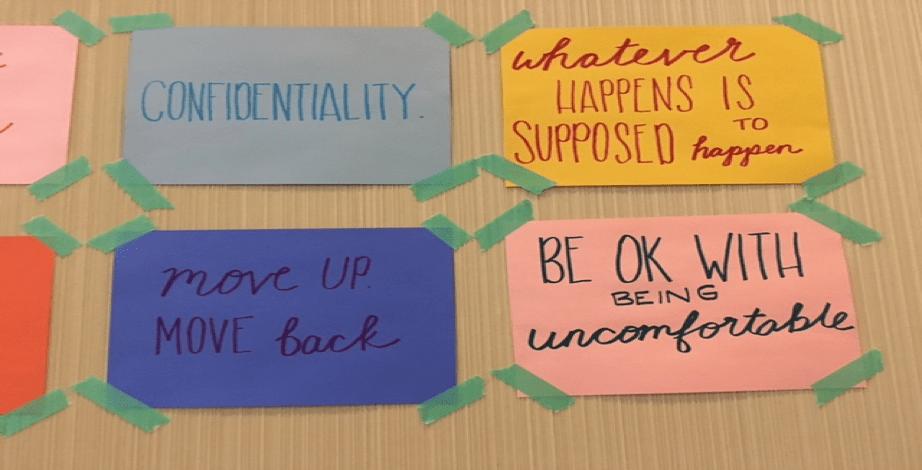 CONFIDENTIALITY.
whatever
HAPPENS IS
SUPPOSED TO happen
move UP.
MOVE back
BE OK WITH
BEING
uncomfortable